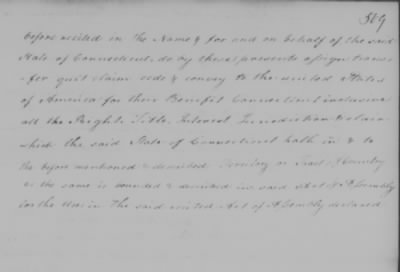 509
before recited in the Name & for and on behalf of the said
State of Connecticut do by these presents assign trans-
-fer quit claim cede & convey to the united States
of America for their Benefit Connecticut inclusive
all the Right Title Interest Jurisdiction & claim
which the said State of Connecticut hath in & to
the before mentioned & described Territory or Tract of Country
as the same is bounded & described in said Act of Assembly
for the Uses in the said recited Act of Assembly declared